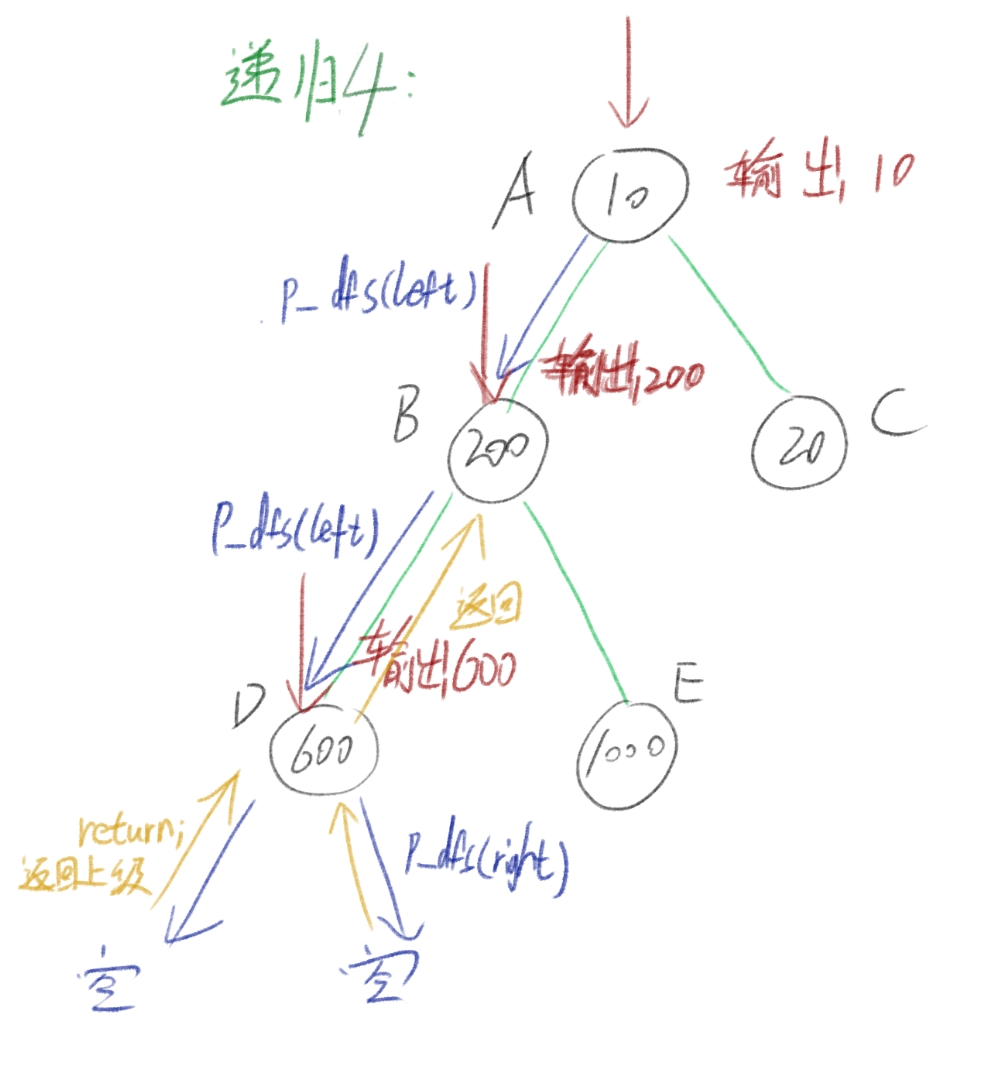 递归4:
A
10
输出,10
P_dfs(left)
输出,200
B
200
20
C
P_dfs(left)
返回
输出,600
D
600
E
1000
return;
返回上级
P_dfs(right)
空
空